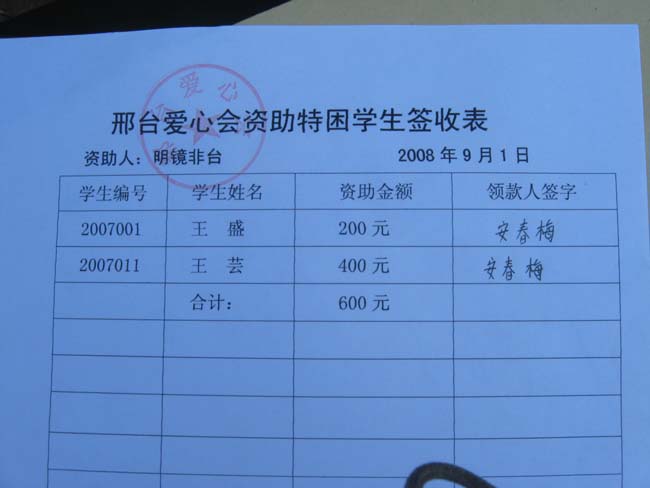 邢台爱心会资助特困学生签收表
资助人：明镜非台 2008年9月1日
学生编号 学生姓名 资助金额 领款人签字
2007001 王 盛 200元 安春梅
2007011 王 芸 400元 安春梅
合计： 600元
爱心